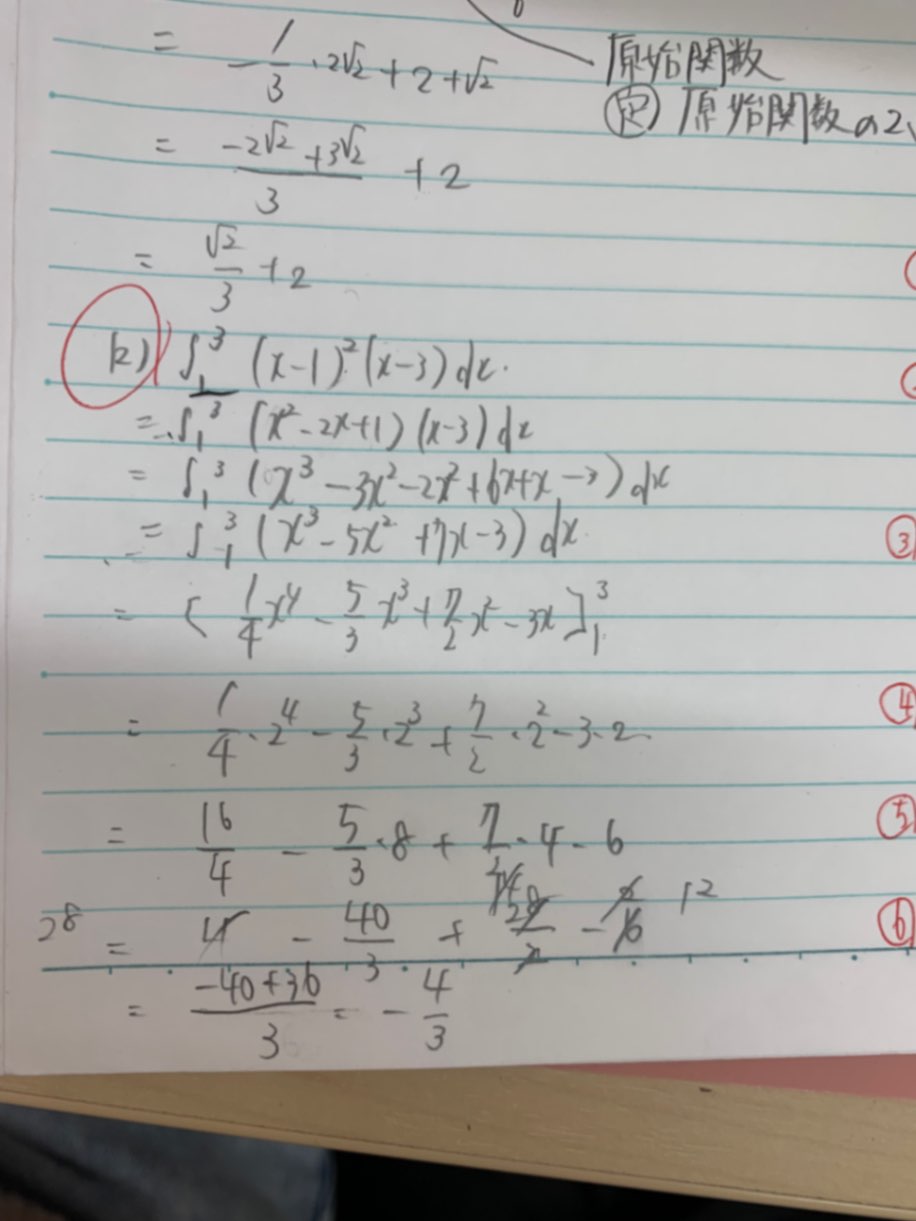 = -1/3・2√2 + 2 + √2
原始関数
定) 原始関数の2
= (-2√2 + 3√2)/3 + 2
= √2/3 + 2
(2) ∫₁³ (x-1)²(x-3)dx.
= ∫₁³ (x²-2x+1)(x-3)dx
= ∫₁³ (x³-3x²-2x²+6x+x-3)dx
③ = ∫₁³ (x³-5x²+7x-3)dx.
= [1/4 x⁴ - 5/3 x³ + 7/2 x² - 3x]₁³
④ = 1/4・2⁴ - 5/3・2³ + 7/2・2² - 3・2
⑤ = 16/4 - 5/3・8 + 7/2・4 - 6
⑥ 28 = 4 - 40/3 + 28/2 - 6 12
= (-40+36)/3 = -4/3